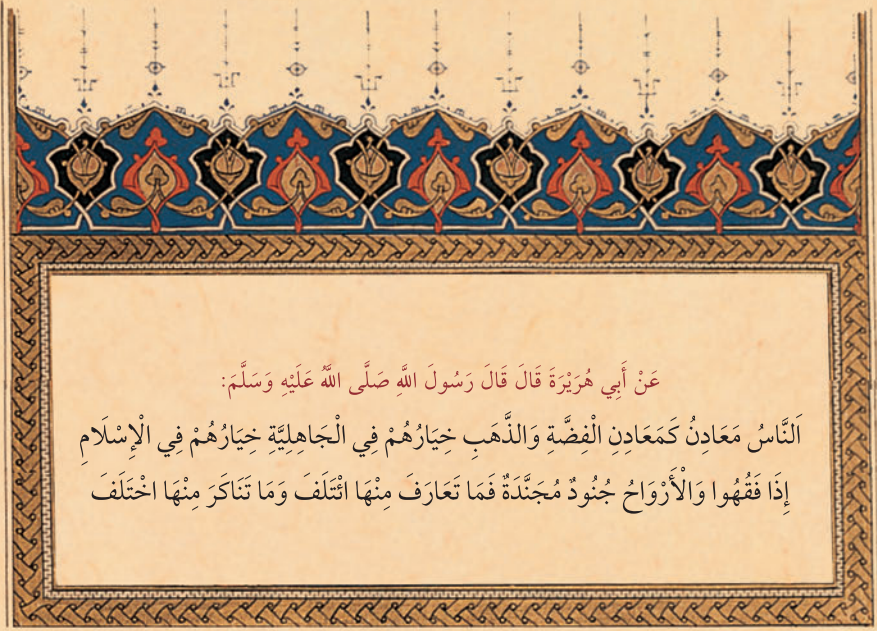 عَنْ أَبِي هُرَيْرَةَ قَالَ قَالَ رَسُولَ اللَّهِ صَلَّى اللَّهُ عَلَيْهِ وَسَلَّمَ:
اَلنَّاسُ مَعَادِنُ كَمَعَادِنِ الْفِضَّةِ وَالذَّهَبِ خِيَارُهُمْ فِي الْجَاهِلِيَّةِ خِيَارُهُمْ فِي الْإِسْلَامِ
إِذَا فَقُهُوا وَالْأَرْوَاحُ جُنُودٌ مُجَنَّدَةٌ فَمَا تَعَارَفَ مِنْهَا ائْتَلَفَ وَمَا تَنَاكَرَ مِنْهَا اخْتَلَفَ